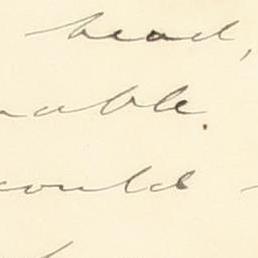 head,
able.
could